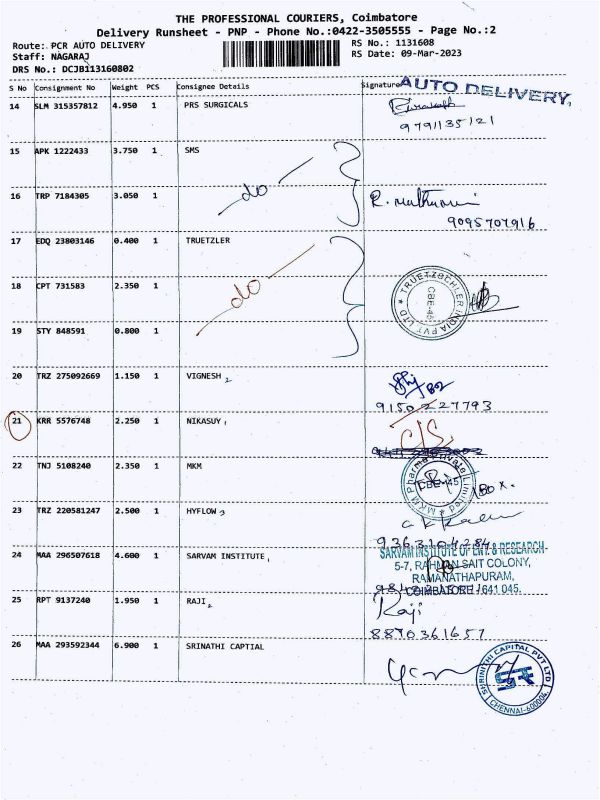 THE PROFESSIONAL COURIERS, Coimbatore
Delivery Runsheet - PNP - Phone No.:0422-3505555 - Page No.:2
Route: PCR AUTO DELIVERY
RS No.: 1131608
Staff: NAGARAJ
RS Date: 09-Mar-2023
DRS No.: DCJB113160802
S No Consignment No Weight PCS Consignee Details Signature AUTO DELIVERY,
14 SLM 315357812 4.950 1 PRS SURGICALS
9791135121
15 APK 1222433 3.750 1 SMS
do
16 TRP 7184305 3.050 1 R. muthumani
9095707916
17 EDQ 23803146 0.400 1 TRUETZLER
do
18 CPT 731583 2.350 1
TRUETZSCHLER INDIA PVT LTD
CBE-45
19 STY 848591 0.800 1
20 TRZ 275092669 1.150 1 VIGNESH 2
9150227793
21 KRR 5576748 2.250 1 NIKASUY 1
22 TNJ 5108240 2.350 1 MKM
MKM Pharma Private Limited
CBE-45
23 TRZ 220581247 2.500 1 HYFLOW 3
9363104284
24 MAA 296507618 4.600 1 SARVAM INSTITUTE 1
SARVAM INSTITUTE OF ENT. & RESEARCH
5-7, RAHMAN SAIT COLONY,
RAMANATHAPURAM,
COIMBATORE - 641 045.
25 RPT 9137240 1.950 1 RAJI 2
Raji
8870361657
26 MAA 293592344 6.900 1 SRINATHI CAPTIAL
SHRINITHI CAPITAL PVT LTD
CHENNAI-600004